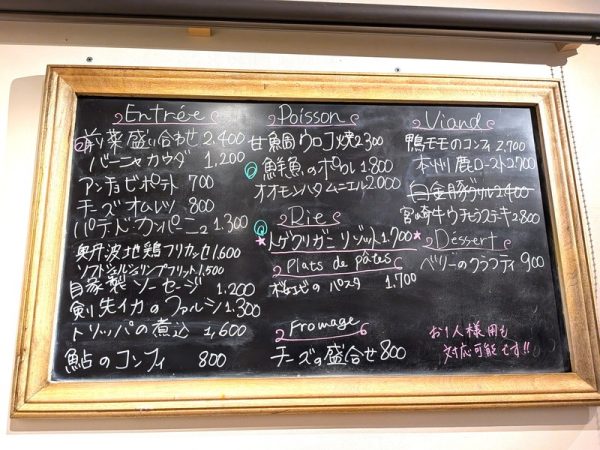 Entrée
前菜盛り合わせ 2.400
バーニャカウダ 1.200
アンチョビポテト 700
チーズオムレツ 800
パテドカンパーニュ 1.300
奥丹波地鶏フリカッセ 1,600
ソフトシェルシュリンプフリット 1,500
自家製ソーセージ 1.200
剣先イカのファルシ 1.300
トリッパの煮込 1,600
鮎のコンフィ 800
Poisson
甘鯛ウロコ焼 2300
鮮魚のポワレ 1.800
オオモンハタムニエル 2.000
Rie
トゲクリガニリゾット 1.700
Plats de pâtes
桜エビのパスタ 1.700
Fromage
チーズの盛合せ 800
Viand
鴨モモのコンフィ 2,700
本州鹿ロースト 2700
白金豚グリル 2400
宮崎牛ウチモモステキ 2800
Déssert
ベリーのクラフティ 900
お1人様用も
対応可能です!!